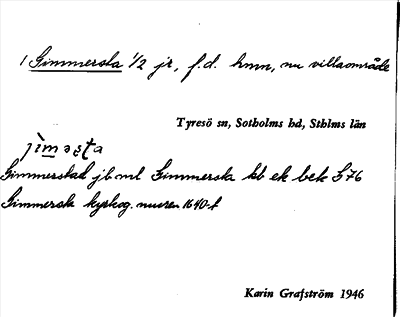 1 Gimmersta 1/2 jr, f.d. hmn, nu villaområde
Tyresö sn, Sotholms hd, Sthlms län
Gimmerstad jb ml Gimmersta kb ek bek
Gimmersta kyrkog. 1640-t
Karin Grafström 1946